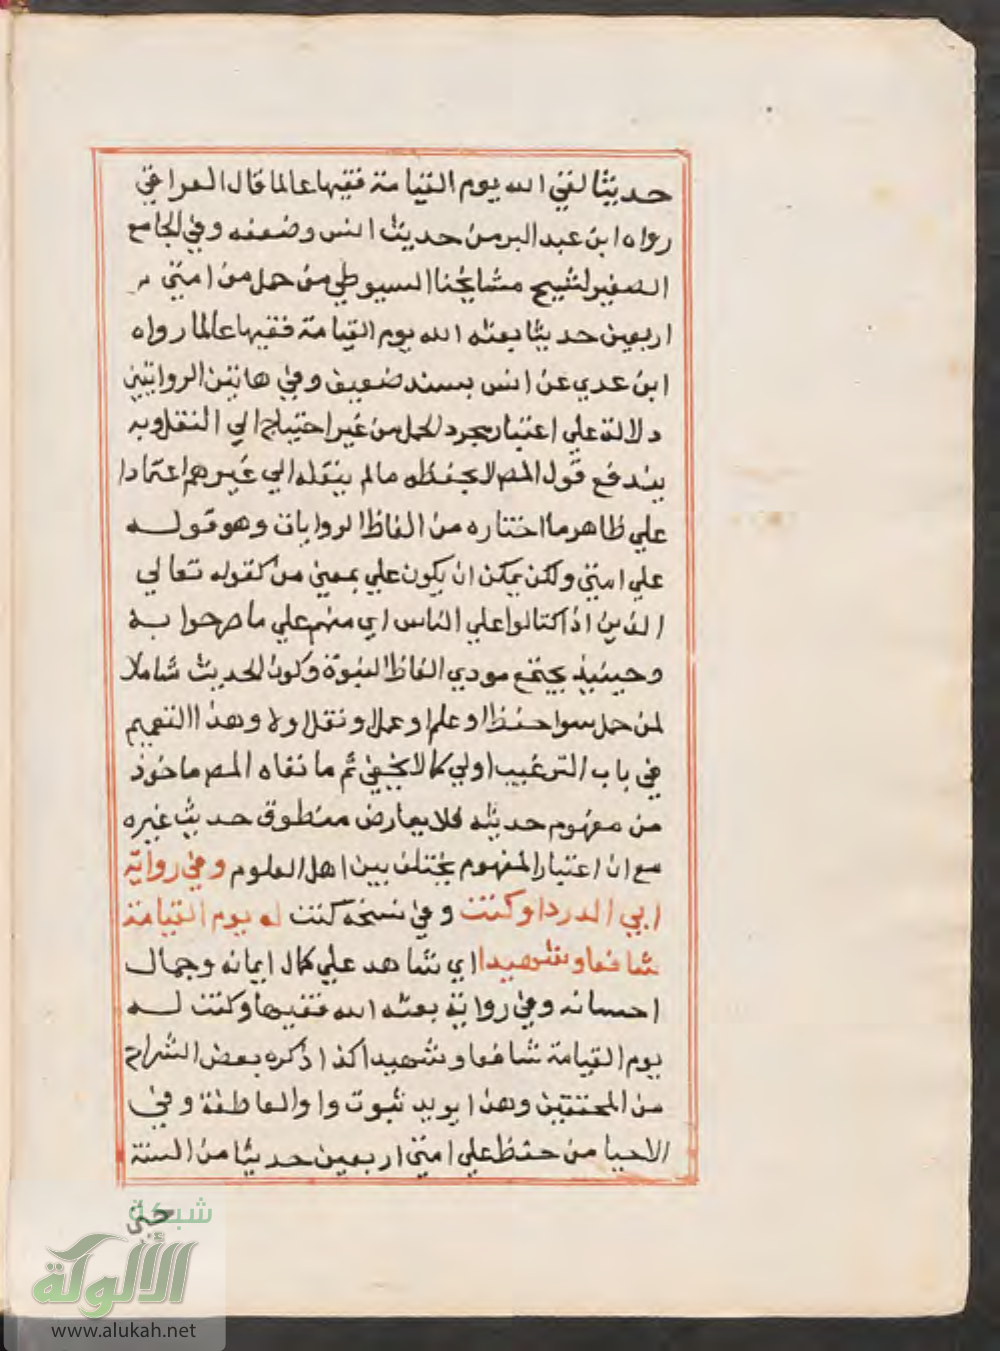 حديثا لقي الله يوم القيامة فقيها عالما قال العراقي
رواه ابن عبد البر من حديث انس وضعفه وفي الجامع
الصغير لشيخ مشايخنا السيوطي من حمل من امتي
اربعين حديثا بعثه الله يوم القيامة فقيها عالما رواه
ابن عدي عن انس بسند ضعيف وفي هاتين الروايتين
دلالة علي اعتبار مجرد الحمل من غير احتياج الي النقل وبه
يندفع قول المص لا بحفظه ما لم ينقله الي غيرهم اعتمادا
علي ظاهر ما اختاره من الفاظ الروايات وهو قوله
علي امتي ولكن يمكن ان يكون علي بمعني من كقوله تعالي
الذين اذا كتالوا علي الناس اي منهم علي ما صرحوا به
وحينيذ يجتمع مودي الفاظ النبوة وكون الحديث شاملا
لمن حمل سوا حفظا وعلما وعملا ونقلا ولا وهذا التعميم
في باب الترغيب اولي كما لا يخفي ثم ما نفاه المص ماخوذ
من مفهوم حديثه فلا يعارض منطوق حديث غيره
مع ان اعتبار المفهوم يختلف بين اهل العلوم وفي رواية
ابي الدردا وكنت وفي نسخة كنت له يوم القيامة
شافعا وشهيدا اي شاهد علي كمال ايمانه وجمال
احسانه وفي رواية بعثه الله فقيها وكنت له
يوم القيامة شافعا وشهيدا كذا ذكره بعض الشراح
من المحققين وهذا يويد ثبوت واو العاطفة وفي
الاحيا من حفظ علي امتي اربعين حديثا من السنة
حتي
شبكة
الألوكة
www.alukah.net